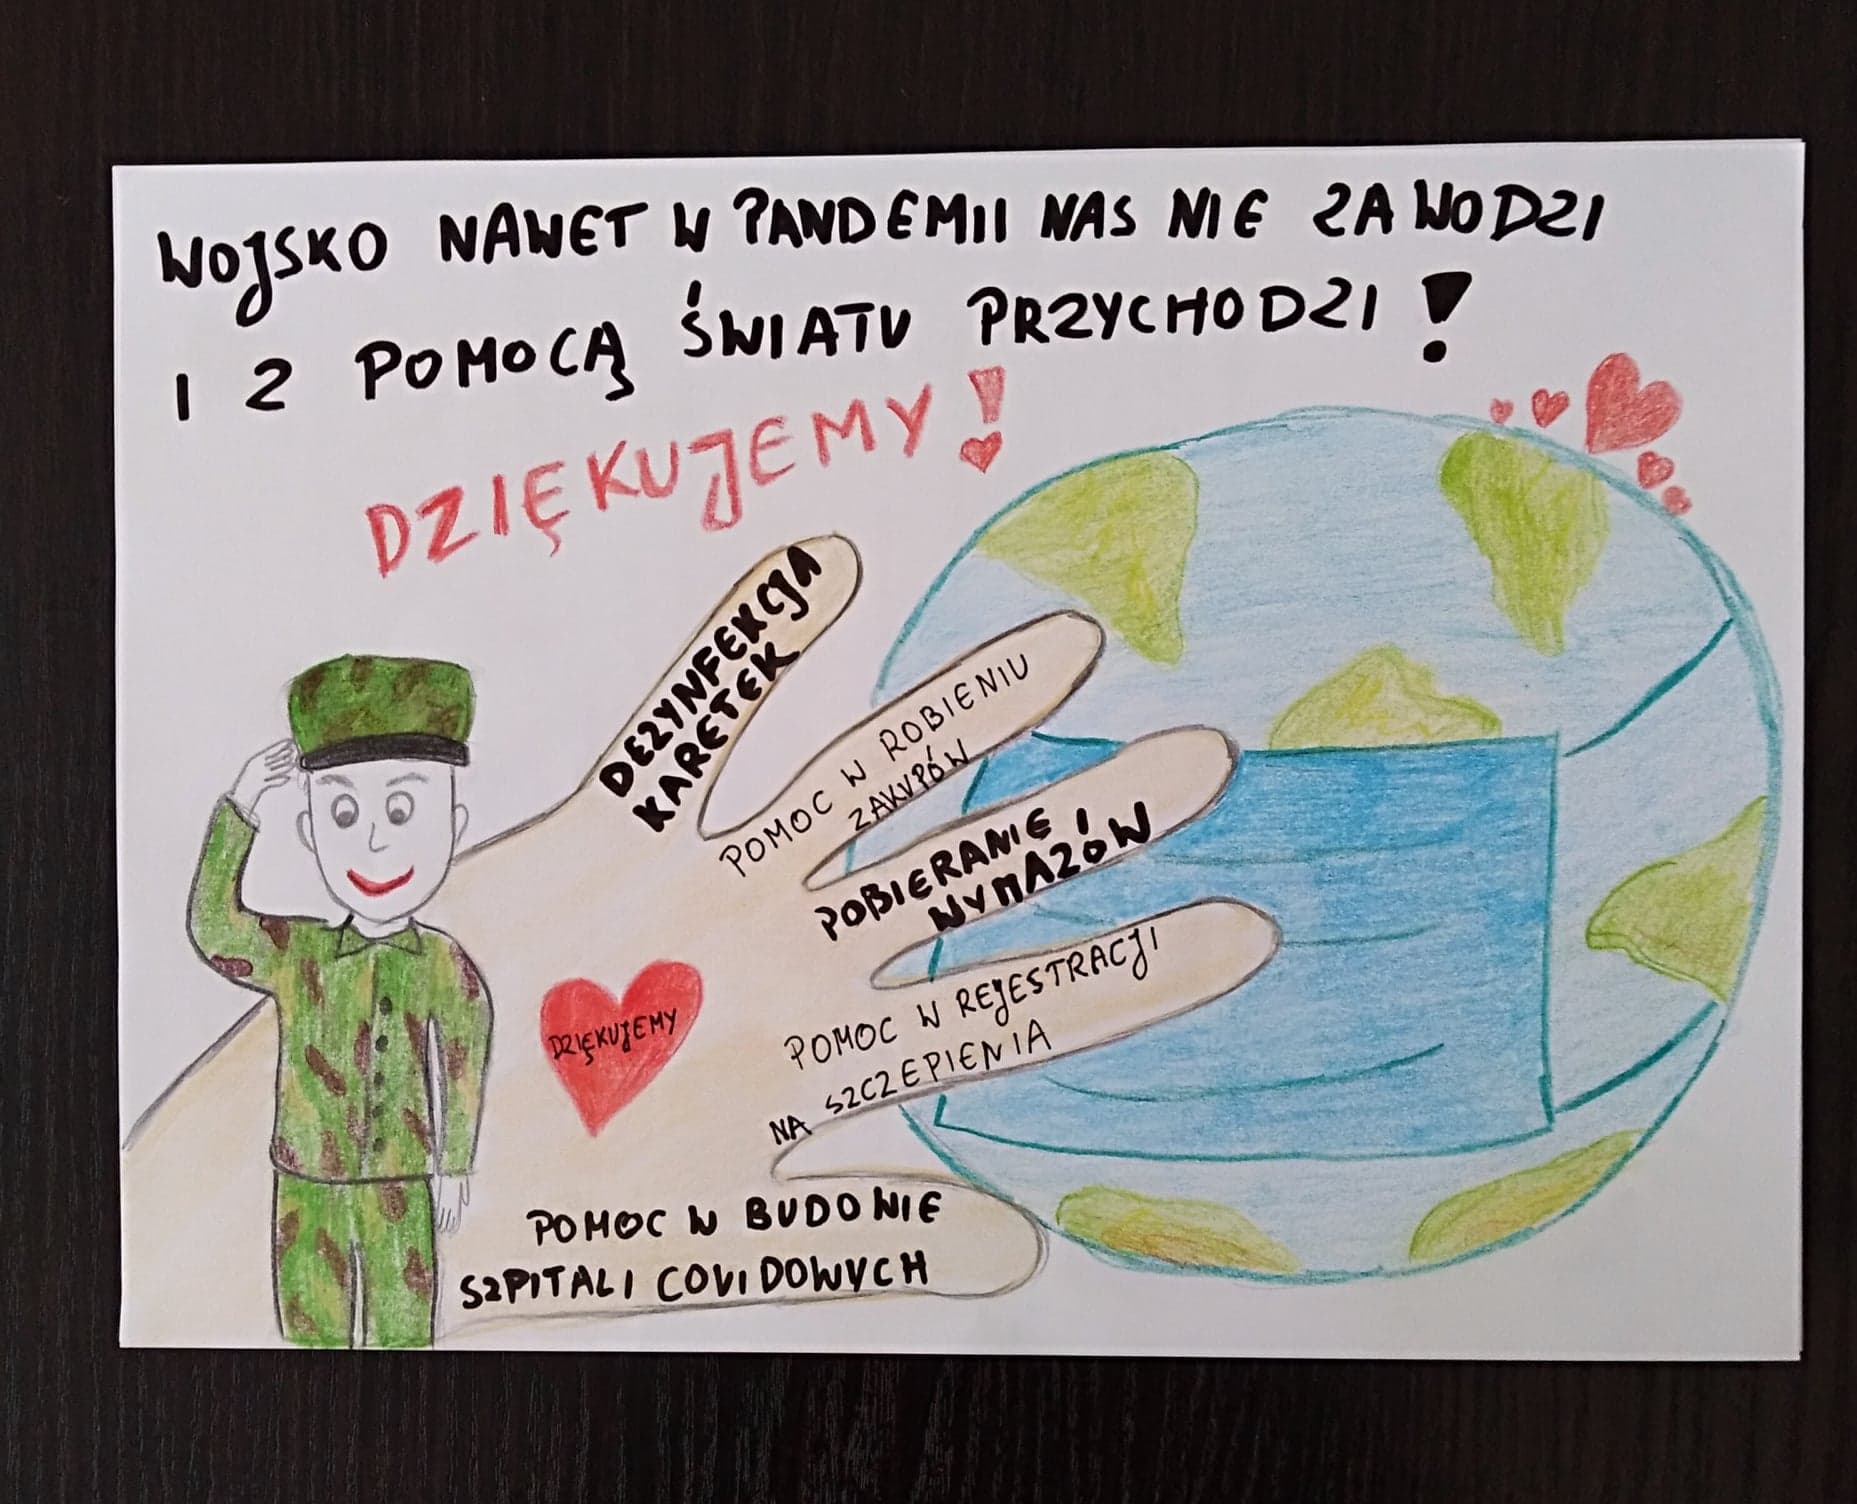 WOJSKO NAWET W PANDEMII NAS NIE ZAWODZI
I Z POMOCĄ ŚWIATU PRZYCHODZI!
DZIĘKUJEMY!
DEZYNFEKCJA
KARETEK
POMOC W ROBIENIU
ZAKUPÓW
POBIERANIE
WYMAZÓW
POMOC W REJESTRACJI
NA SZCZEPIENIA
DZIĘKUJEMY
POMOC W BUDOWIE
SZPITALI COVIDOWYCH